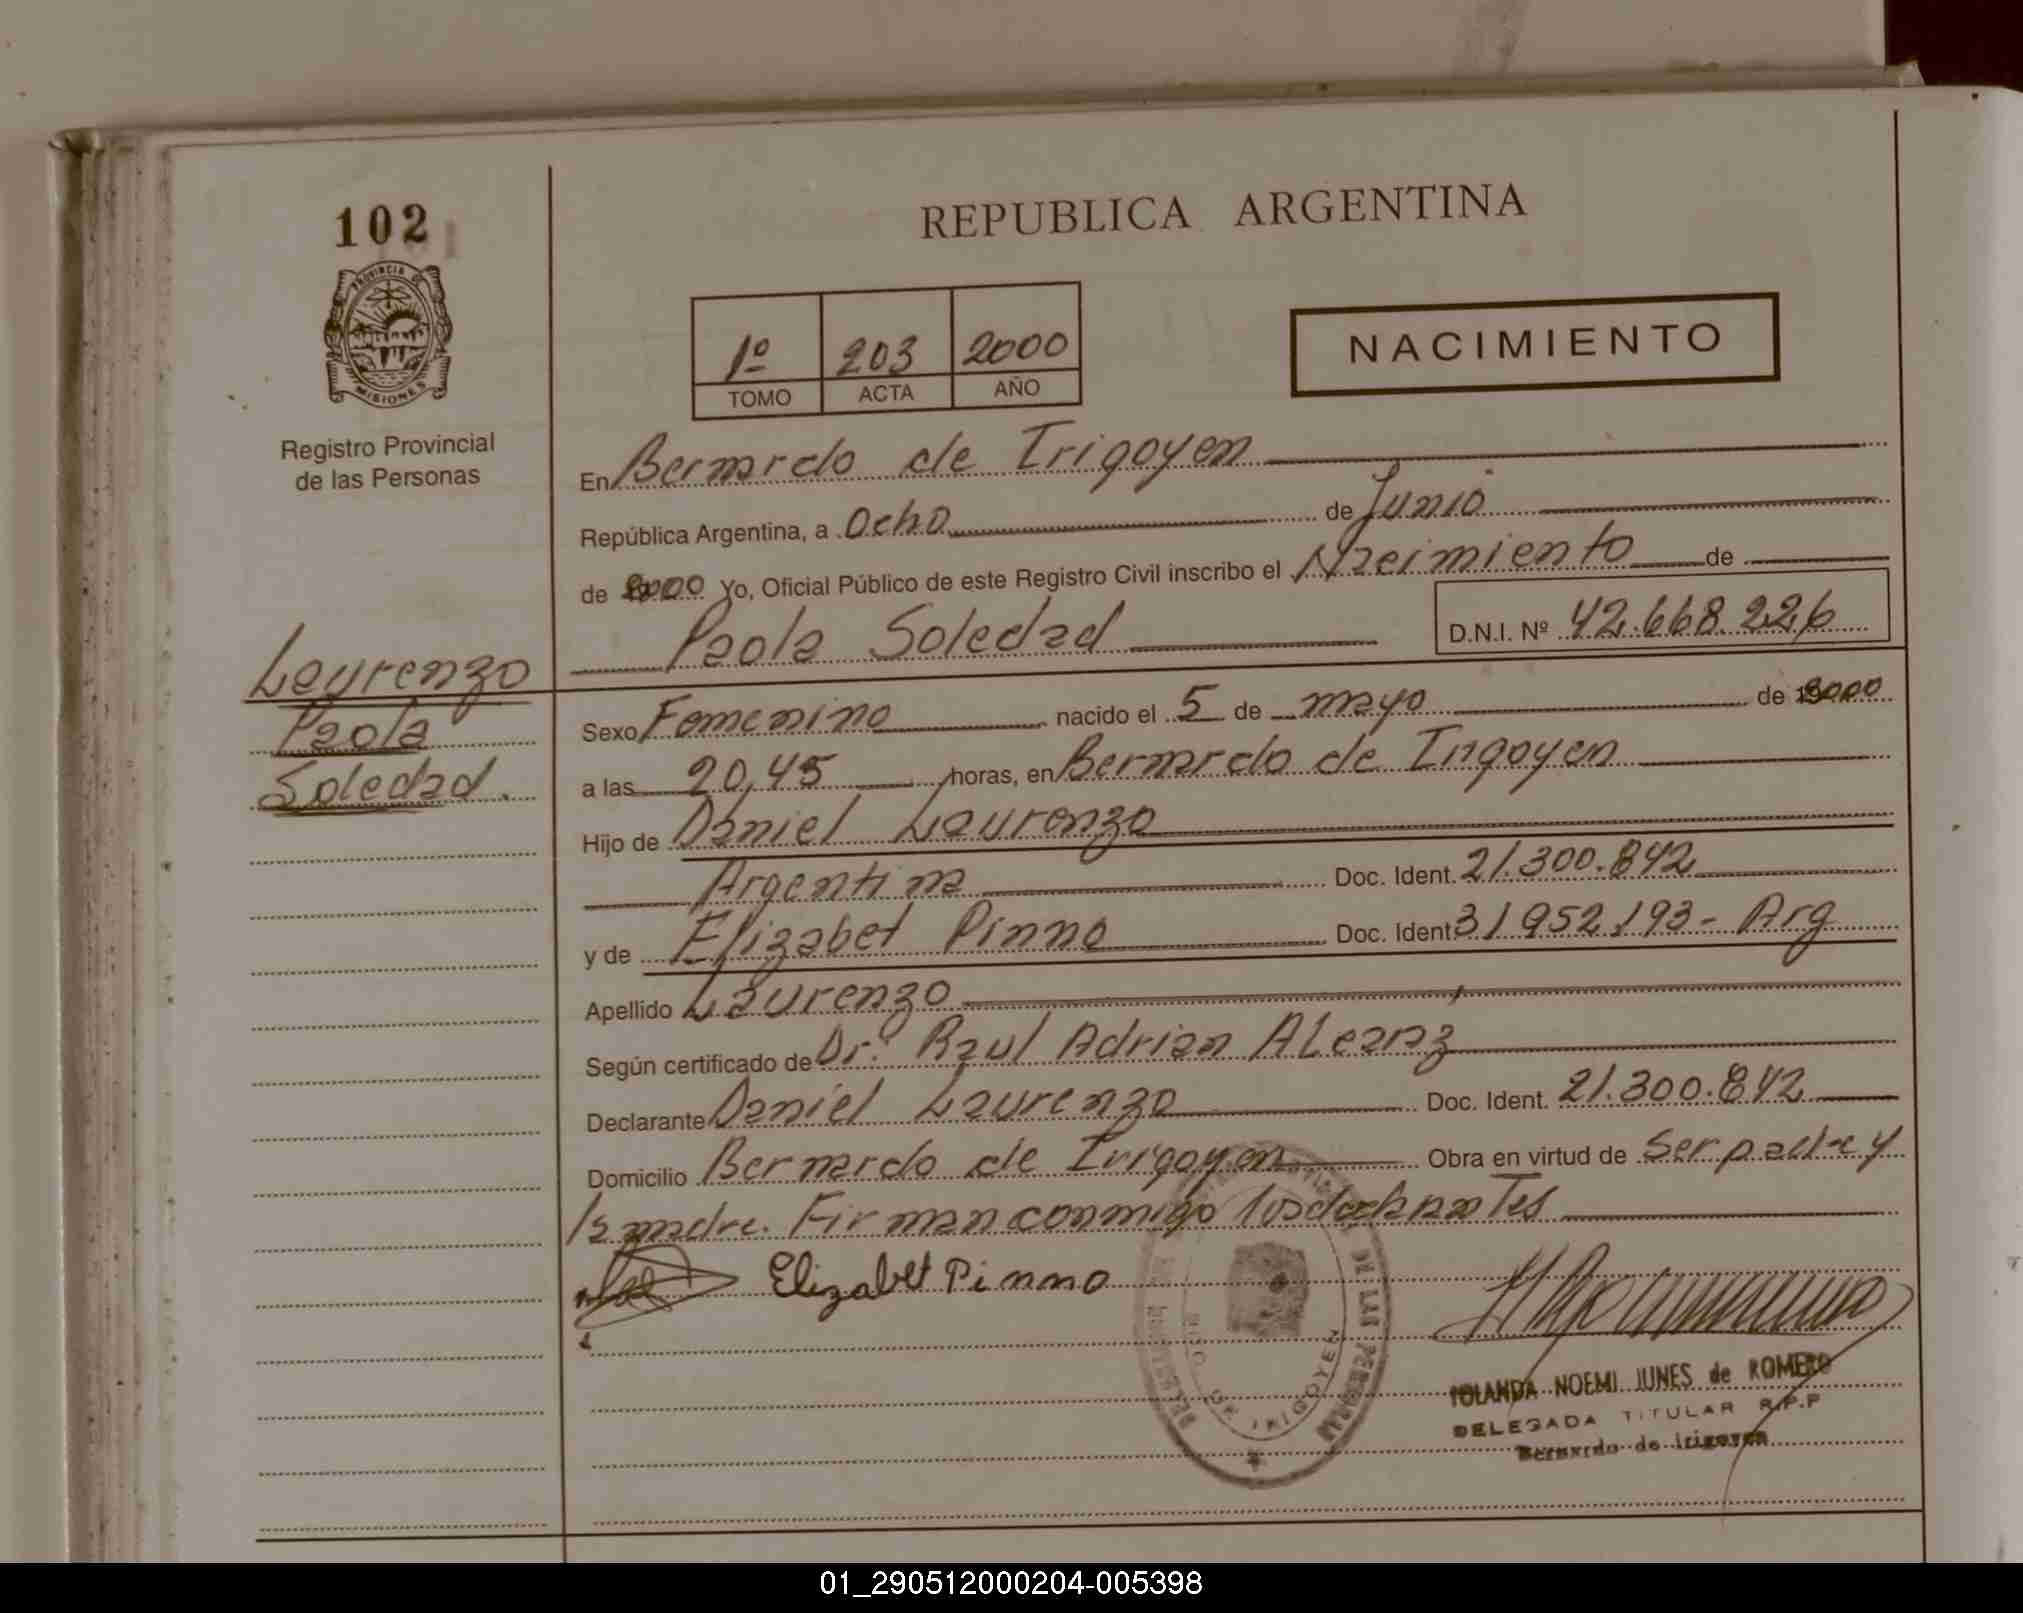 102
REPUBLICA ARGENTINA
PROVINCIA DE
MISIONES
Registro Provincial
de las Personas
1º 203 2000
TOMO ACTA AÑO
NACIMIENTO
En Bernardo de Irigoyen
República Argentina, a Ocho de Junio
de 2000 Yo, Oficial Público de este Registro Civil inscribo el Nacimiento de
Paola Soledad D.N.I. Nº 42.668.226
Laurenzo
Paola
Soledad.
Sexo Femenino nacido el 5 de mayo de 2000
a las 20,45 horas, en Bernardo de Irigoyen
Hijo de Daniel Laurenzo
Argentina Doc. Ident. 21.300.842
y de Elizabet Pinno Doc. Ident 31952193- Arg
Apellido Laurenzo
Según certificado de Dr. Raul Adrian ALcaraz
Declarante Daniel Laurenzo Doc. Ident. 21.300.842
Domicilio Bernardo de Irigoyen Obra en virtud de Ser padre y
la madre. Firman conmigo los
Elizabet Pinno
DE LAS PERSONAS
DE IRIGOYEN
YOLANDA NOEMI JUNES de ROMERO
DELEGADA TITULAR R.P.P
Bernardo de Irigoyen
01_290512000204-005398